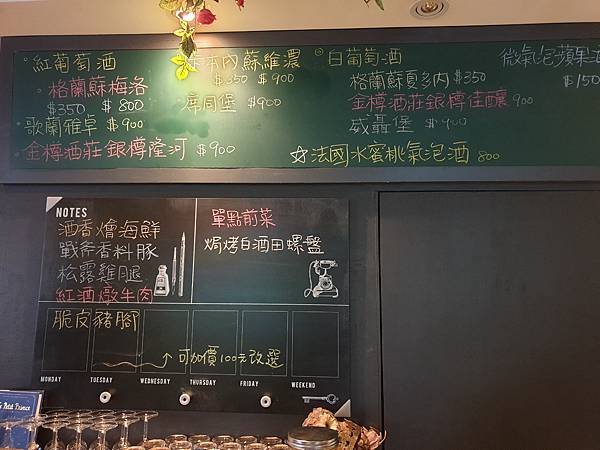 紅葡萄酒
格蘭蘇梅洛
$350 $800
歌蘭雅卓 $900
金樽酒莊銀樽隆河 $900
本內蘇維濃
$350 $900
席同堡 $900
白葡萄酒
格蘭蘇夏多內 $350
金樽酒莊銀樽佳釀 900
威聶堡 $900
☆法國水蜜桃氣泡酒 800
微氣泡蘋果酒
$150
NOTES
酒香燴海鮮
戰斧香料豚
松露雞腿
紅酒燉牛肉
單點前菜
焗烤白酒田螺盤
脆皮豬腳
↗可加價100元改選
MONDAY TUESDAY WEDNESDAY THURSDAY FRIDAY WEEKEND
Petit Prince